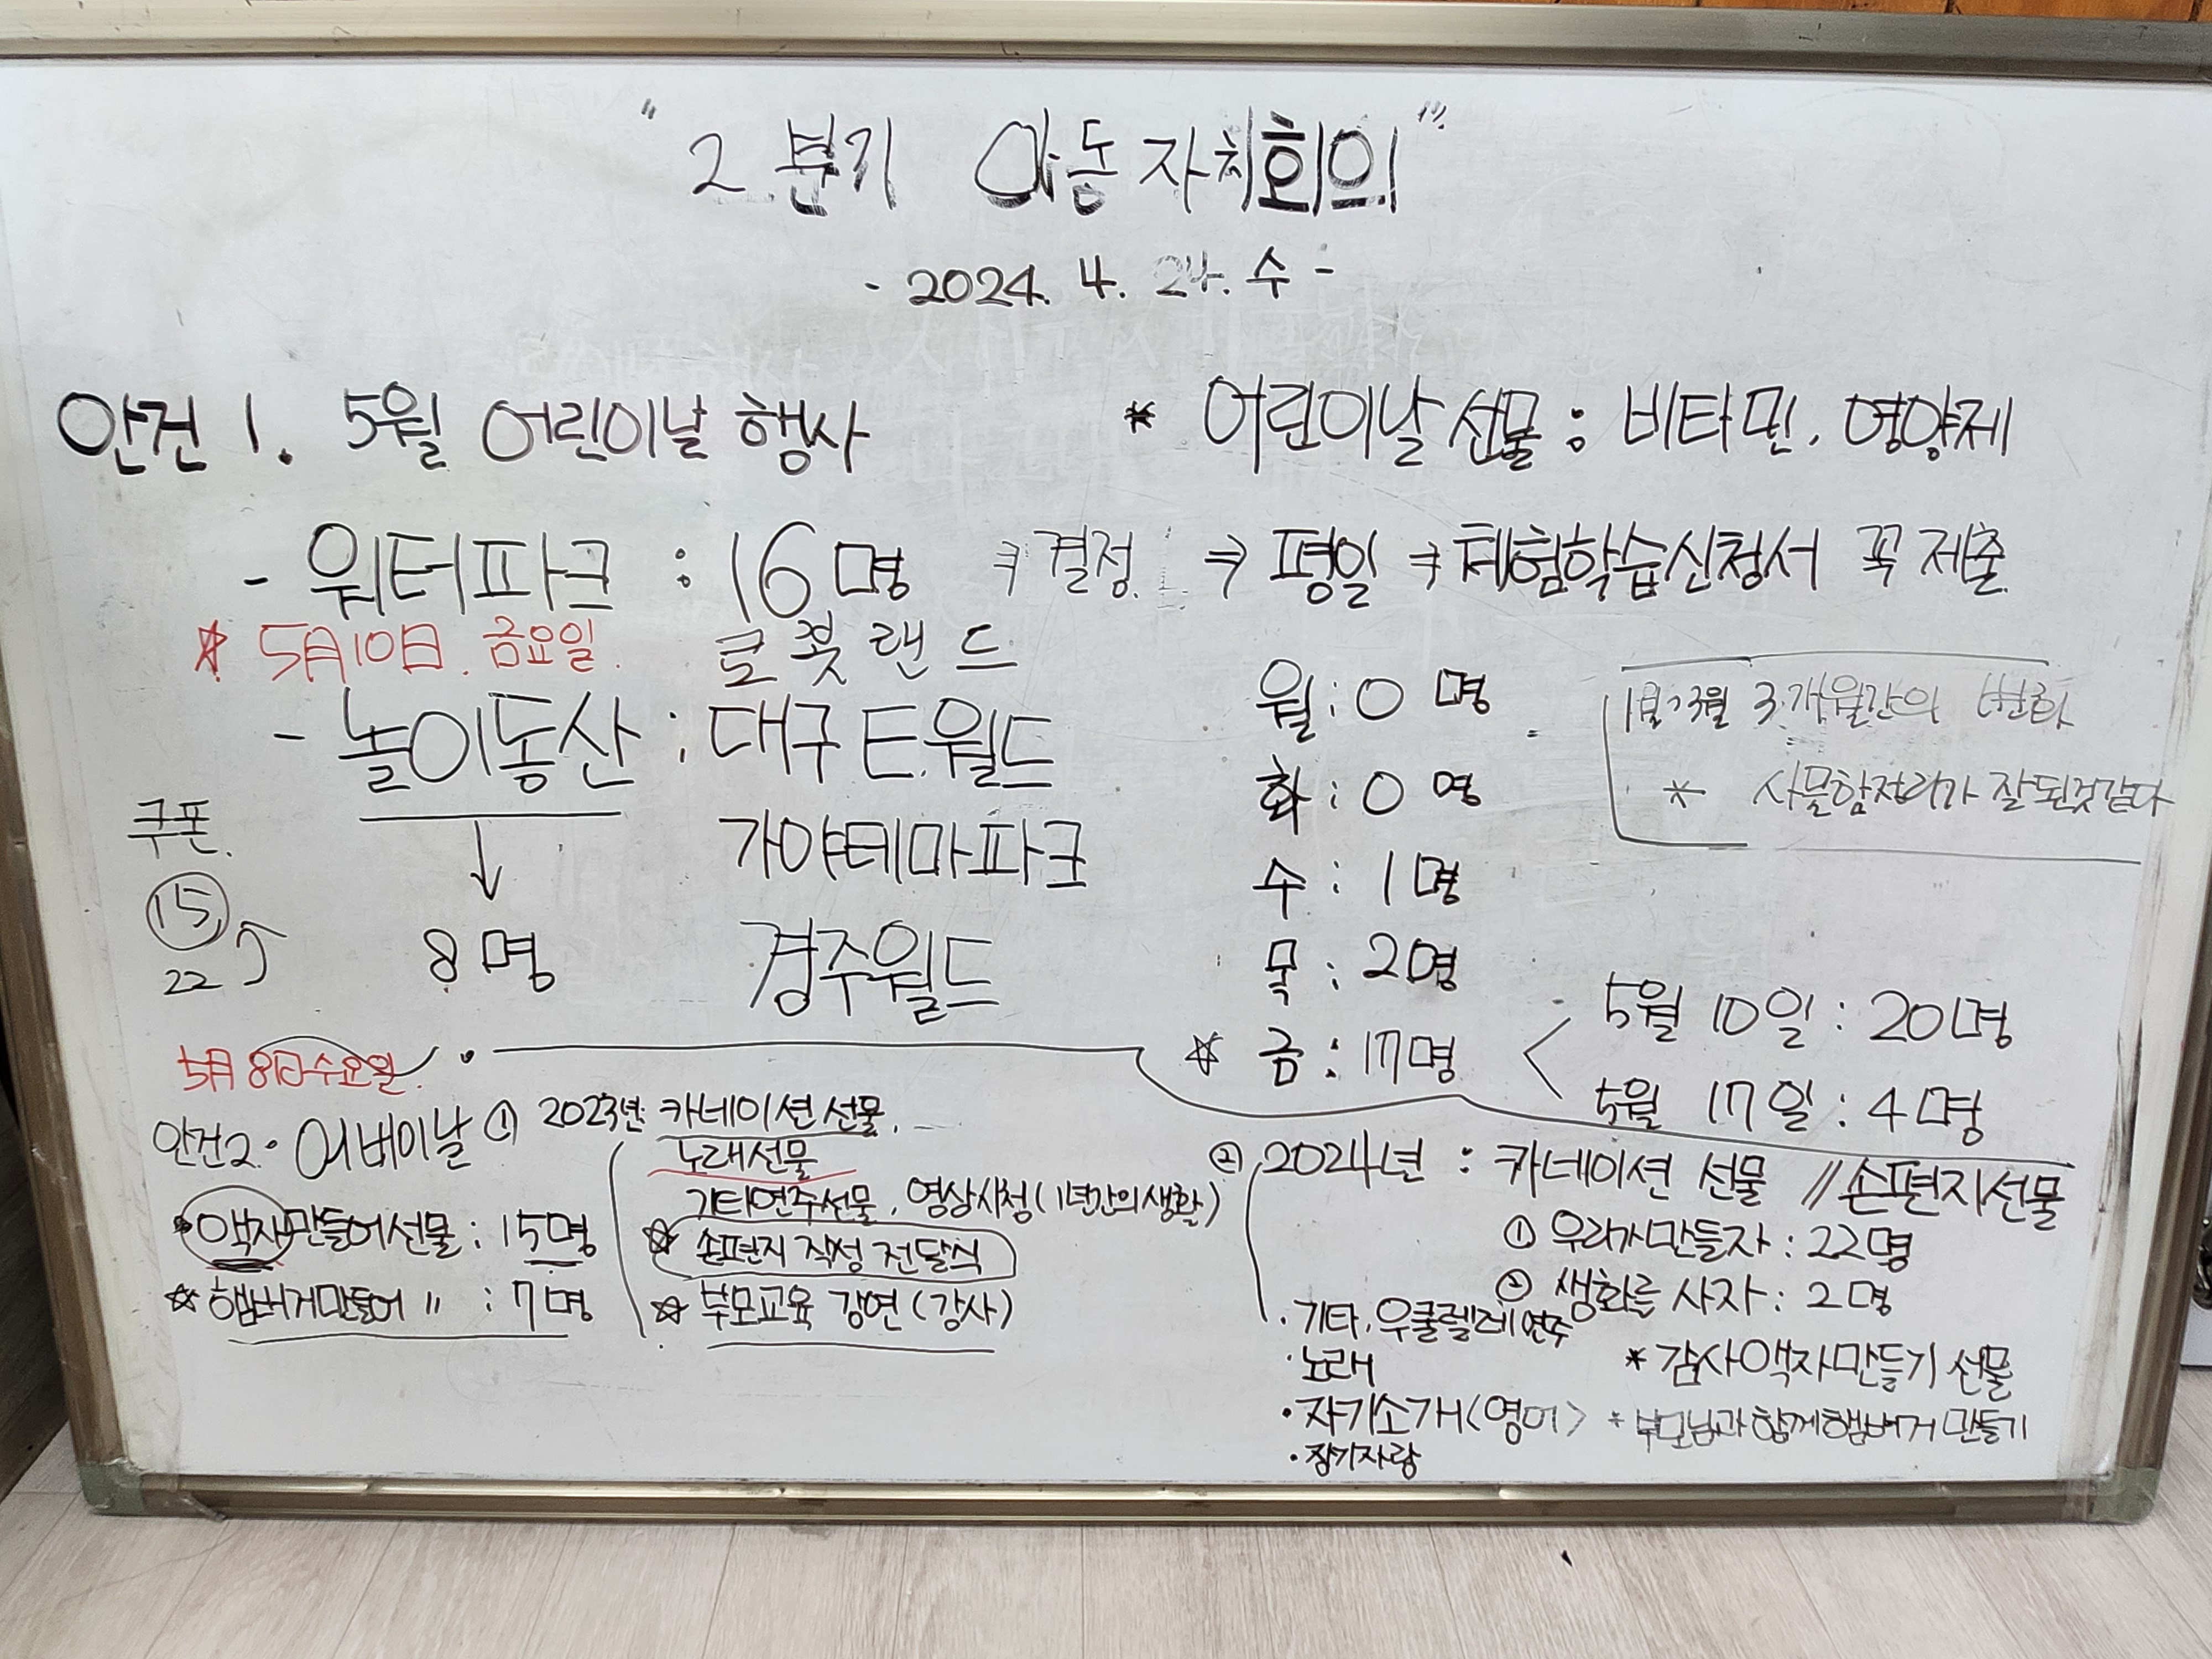 "2분기 아동자치회의"
- 2024. 4. 24. 수 -
안건 1. 5월 어린이날 행사
* 어린이날 선물 : 비타민, 영양제
- 워터파크 : 16명 ⇒ 결정! ⇒ 평일 ⇒ 체험학습신청서 꼭 제출
☆ 5月10日. 금요일.
로봇랜드
- 놀이동산 : 대구 E.월드
가야테마파크
경주월드
↓
8명
쿠폰.
15
22
월 : 0명
화 : 0명
수 : 1명
목 : 2명
☆ 금 : 17명
5월 10일 : 20명
5월 17일 : 4명
1월~3월 3개월간의 변화
* 사물함정리가 잘된것같다
5月8日수요일.
안건2. 어버이날
• 액자만들어선물 : 15명
☆ 햄버거만들어 〃 : 7명
① 2023년 카네이션 선물.
노래선물
기타연주선물, 영상시청(1년간의생활)
☆ 손편지 작성 전달식
☆ 부모교육 강연(강사)
② 2024년 : 카네이션 선물 // 손편지선물
① 우리가만들자 : 22명
② 생화를 사자 : 2명
· 기타, 우쿨렐레연주
· 노래
· 자기소개<영어>
· 장기자랑
* 감사액자만들기 선물
* 부모님과 함께햄버거 만들기